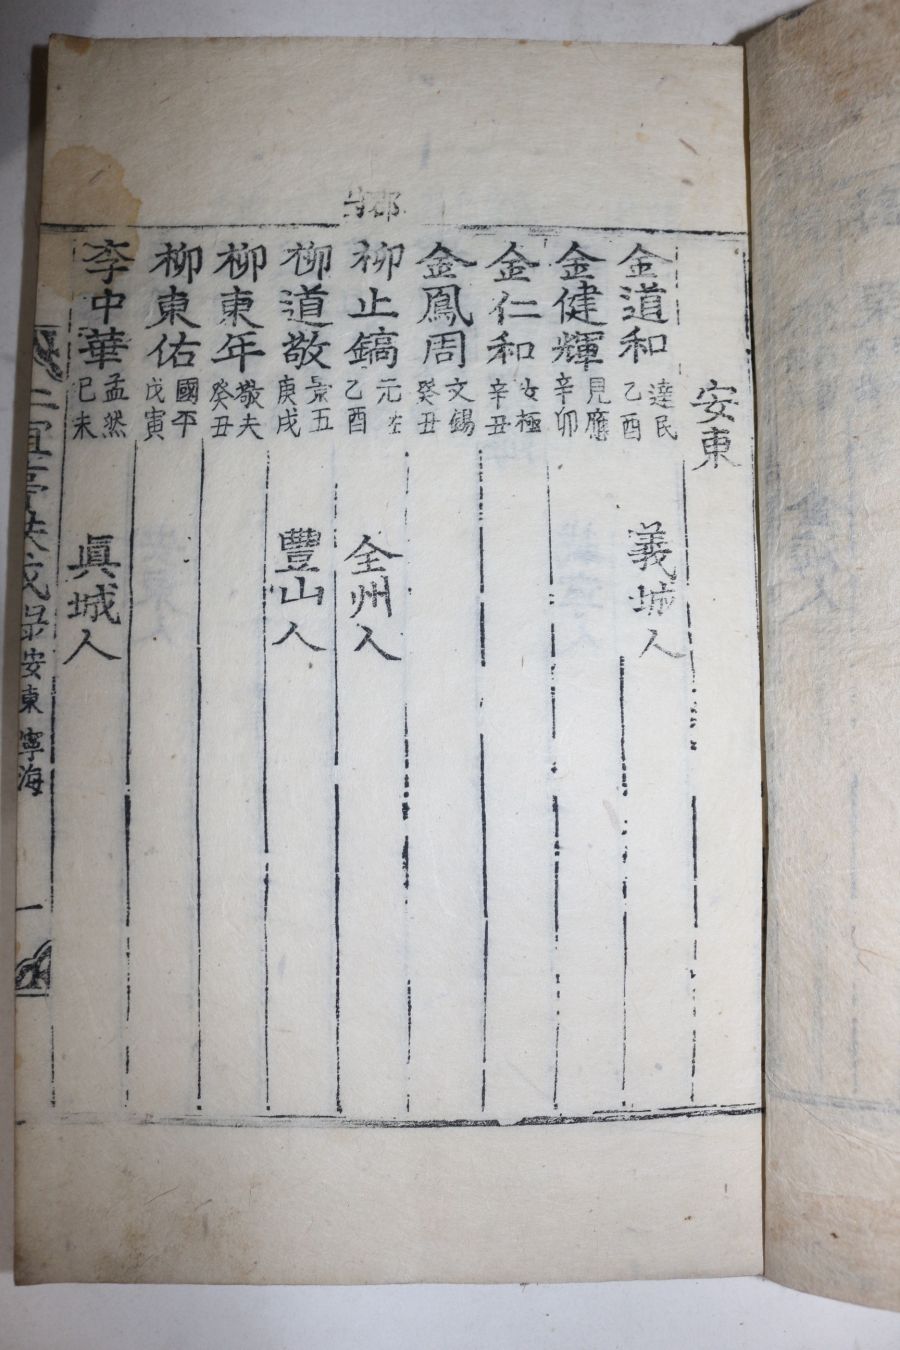 安東
金道和 達民 乙酉 義城人
金健輝 見應 辛卯
金仁和 極 辛丑
金鳳周 文錫 癸丑
柳止鎬 元 乙酉 全州人
柳道敬 五 庚戌 豐山人
柳東年 敬夫 癸丑
柳東佑 國平 戊寅
李中華 孟然 己未 眞城人
二宜亭 錄 安東 寧海 一